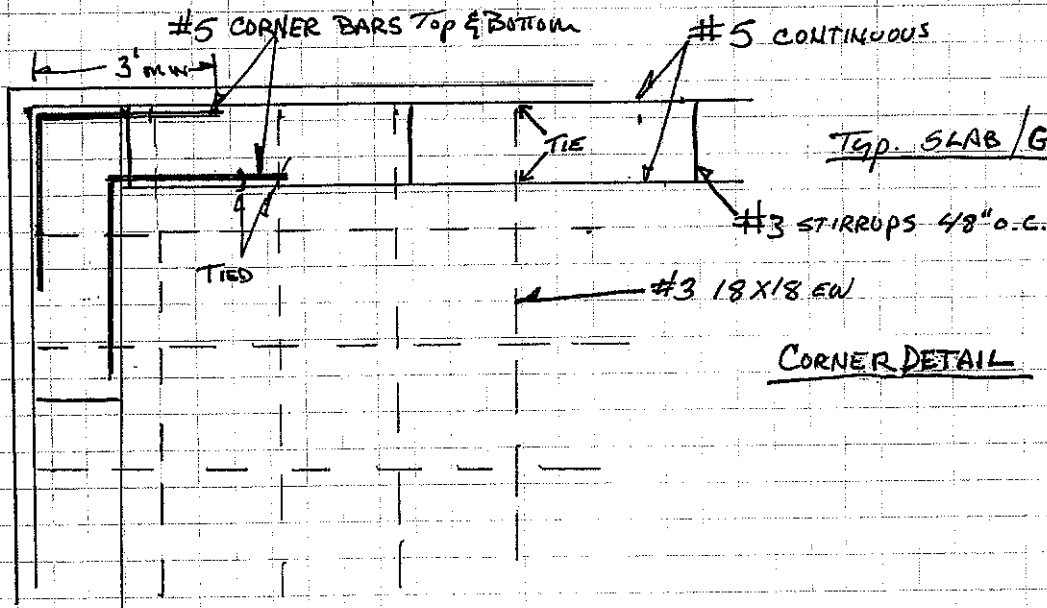 #5 CORNER BARS Top & Bottom
#5 CONTINUOUS
3' MIN
TIE
Typ. SLAB/G
#3 STIRRUPS 48" o.c.
TIED
#3 18X18 EW
CORNER DETAIL